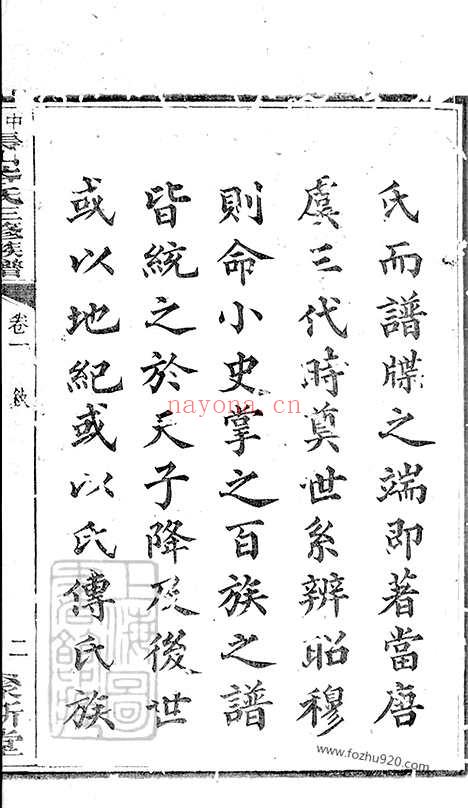 氏而譜牒之端即著當唐
虞三代時奠世系辨昭穆
則命小史掌之百族之譜
皆統之於天子降及後世
或以地紀或以氏傳氏族
氏三修族譜
卷一
敘
二
堂
nayona.cn
上海圖書館藏
www.fozhu920.com